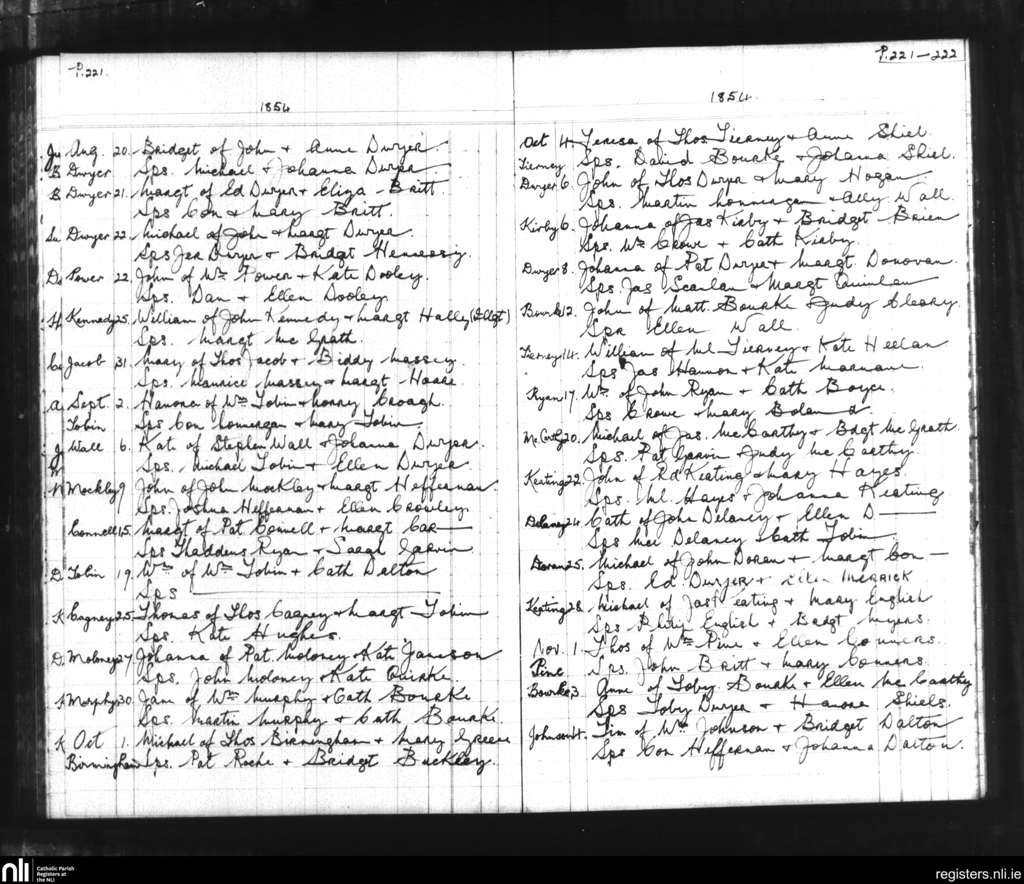 P.221.
1854
Aug. 20. Bridget of John & Anne Dwyer
B Dwyer Sps. Michael & Johanna Dwyer
B Dwyer 21. Margt of Ed Dwyer & Eliza Britt
Sps Con & Mary Britt.
Dwyer 22. Michael of John & Margt Dwyer
Sps Jer Dwyer & Bridgt Hennessy.
Power 22. John of Wm Power & Kate Dooley.
Sps. Dan & Ellen Dooley
Kennedy 25. William of John Kennedy & Margt Halley (Illgt)
Sps. Margt Mc Grath.
Jacob 31. Mary of Thos Jacob & Biddy Massey.
Sps. Maurice Massey & Margt Hoare
Sept. 2. Hanora of Wm Tobin & Croagh.
Tobin Sps Con Lonnergan & Mary Tobin
Wall 6. Kat. of Stephen Wall & Johanna Dwyer.
Sps. Michael Tobin & Ellen Dwyer
Mockley 9 John of John Mockley & Margt Heffernan.
Sps. Joshua Heffernan & Ellen Crowley.
Connell 15. Margt of Pat Connell & Margt Car—
Sps Thaddeus Ryan & Sarah Garvin
Tobin 19. Wm of Wm Tobin & Cath Dalton
Sps
K Cagney 25. Thomas of Thos Cagney & Margt Tobin
Sps. Kate Hughes.
Moloney 27. Johanna of Pat. Moloney & Kate Jameson
Sps. John Moloney & Kate Quirke.
Morphy 30. Jam of Wm Murphy & Cath Bourke
Sps. Martin Murphy & Cath Bourke.
K Oct 1. Michael of Thos Birmingham & Mary Greene
Birmingham Sps. Pat Roche & Bridgt Buckley.
P.221—222
1854.
Oct 4. Teresa of Thos Tierney & Anne Shiel.
Tierney Sps. David Bourke & Johanna Shiel.
Dwyer 6. John of Thos Dwyer & Mary Hogan.
Sps. Martin Lonnergan & Ally Wall.
Kirby 6. Johanna of Jas Kirby & Bridget Brien
Sps. Wm Crowe & Cath Kirby.
Dwyer 8. Johanna of Pat Dwyer & Margt. Donovan.
Sps. Jas Scanlan & Margt Quinlan
Bourke 12. John of Matt. Bourke & Judy Cleary.
Spr Ellen Wall.
Tierney 14. William of Ml Tierney & Kate Heelan
Sps Jas Hannon & Kate Marnane
Ryan 17. Wm. of John Ryan & Cath Boyce.
Sps Crowe & Mary Boland.
Mc Carthy 20. Michael of Jas. Mc Carthy & Bdgt Mc Grath
Sps. Pat Garvin & Judy Mc Carthy
Keating 22. John of Rd Keating & Mary Hayes
Sps. Ml. Hayes & Johanna Keating
Delaney 24. Cath of John Delaney & Ellen D—
Sps Delaney & Cath Tobin
Doran 25. Michael of John Doran & Margt Con—
Sps. Ed Dwyer & Ellen Merrick
Keating 28. Michael of Jas Keating & Mary English
Sps. Philip English & Bdgt Myers.
Nov. 1. Thos of Wm Pine & Ellen Connors.
Pine Sps. John Britt & Mary Connors.
Bourke 3. Anne of Toby Bourke & Ellen Mc Carthy
Sps Toby Dwyer & Hanora Shiels.
Johnson 4. Tim of Wm. Johnson & Bridget Dalton
Sps Con Heffernan & Johanna Dalton.
nli
Catholic Parish
Registers at
the NLI
registers.nli.ie